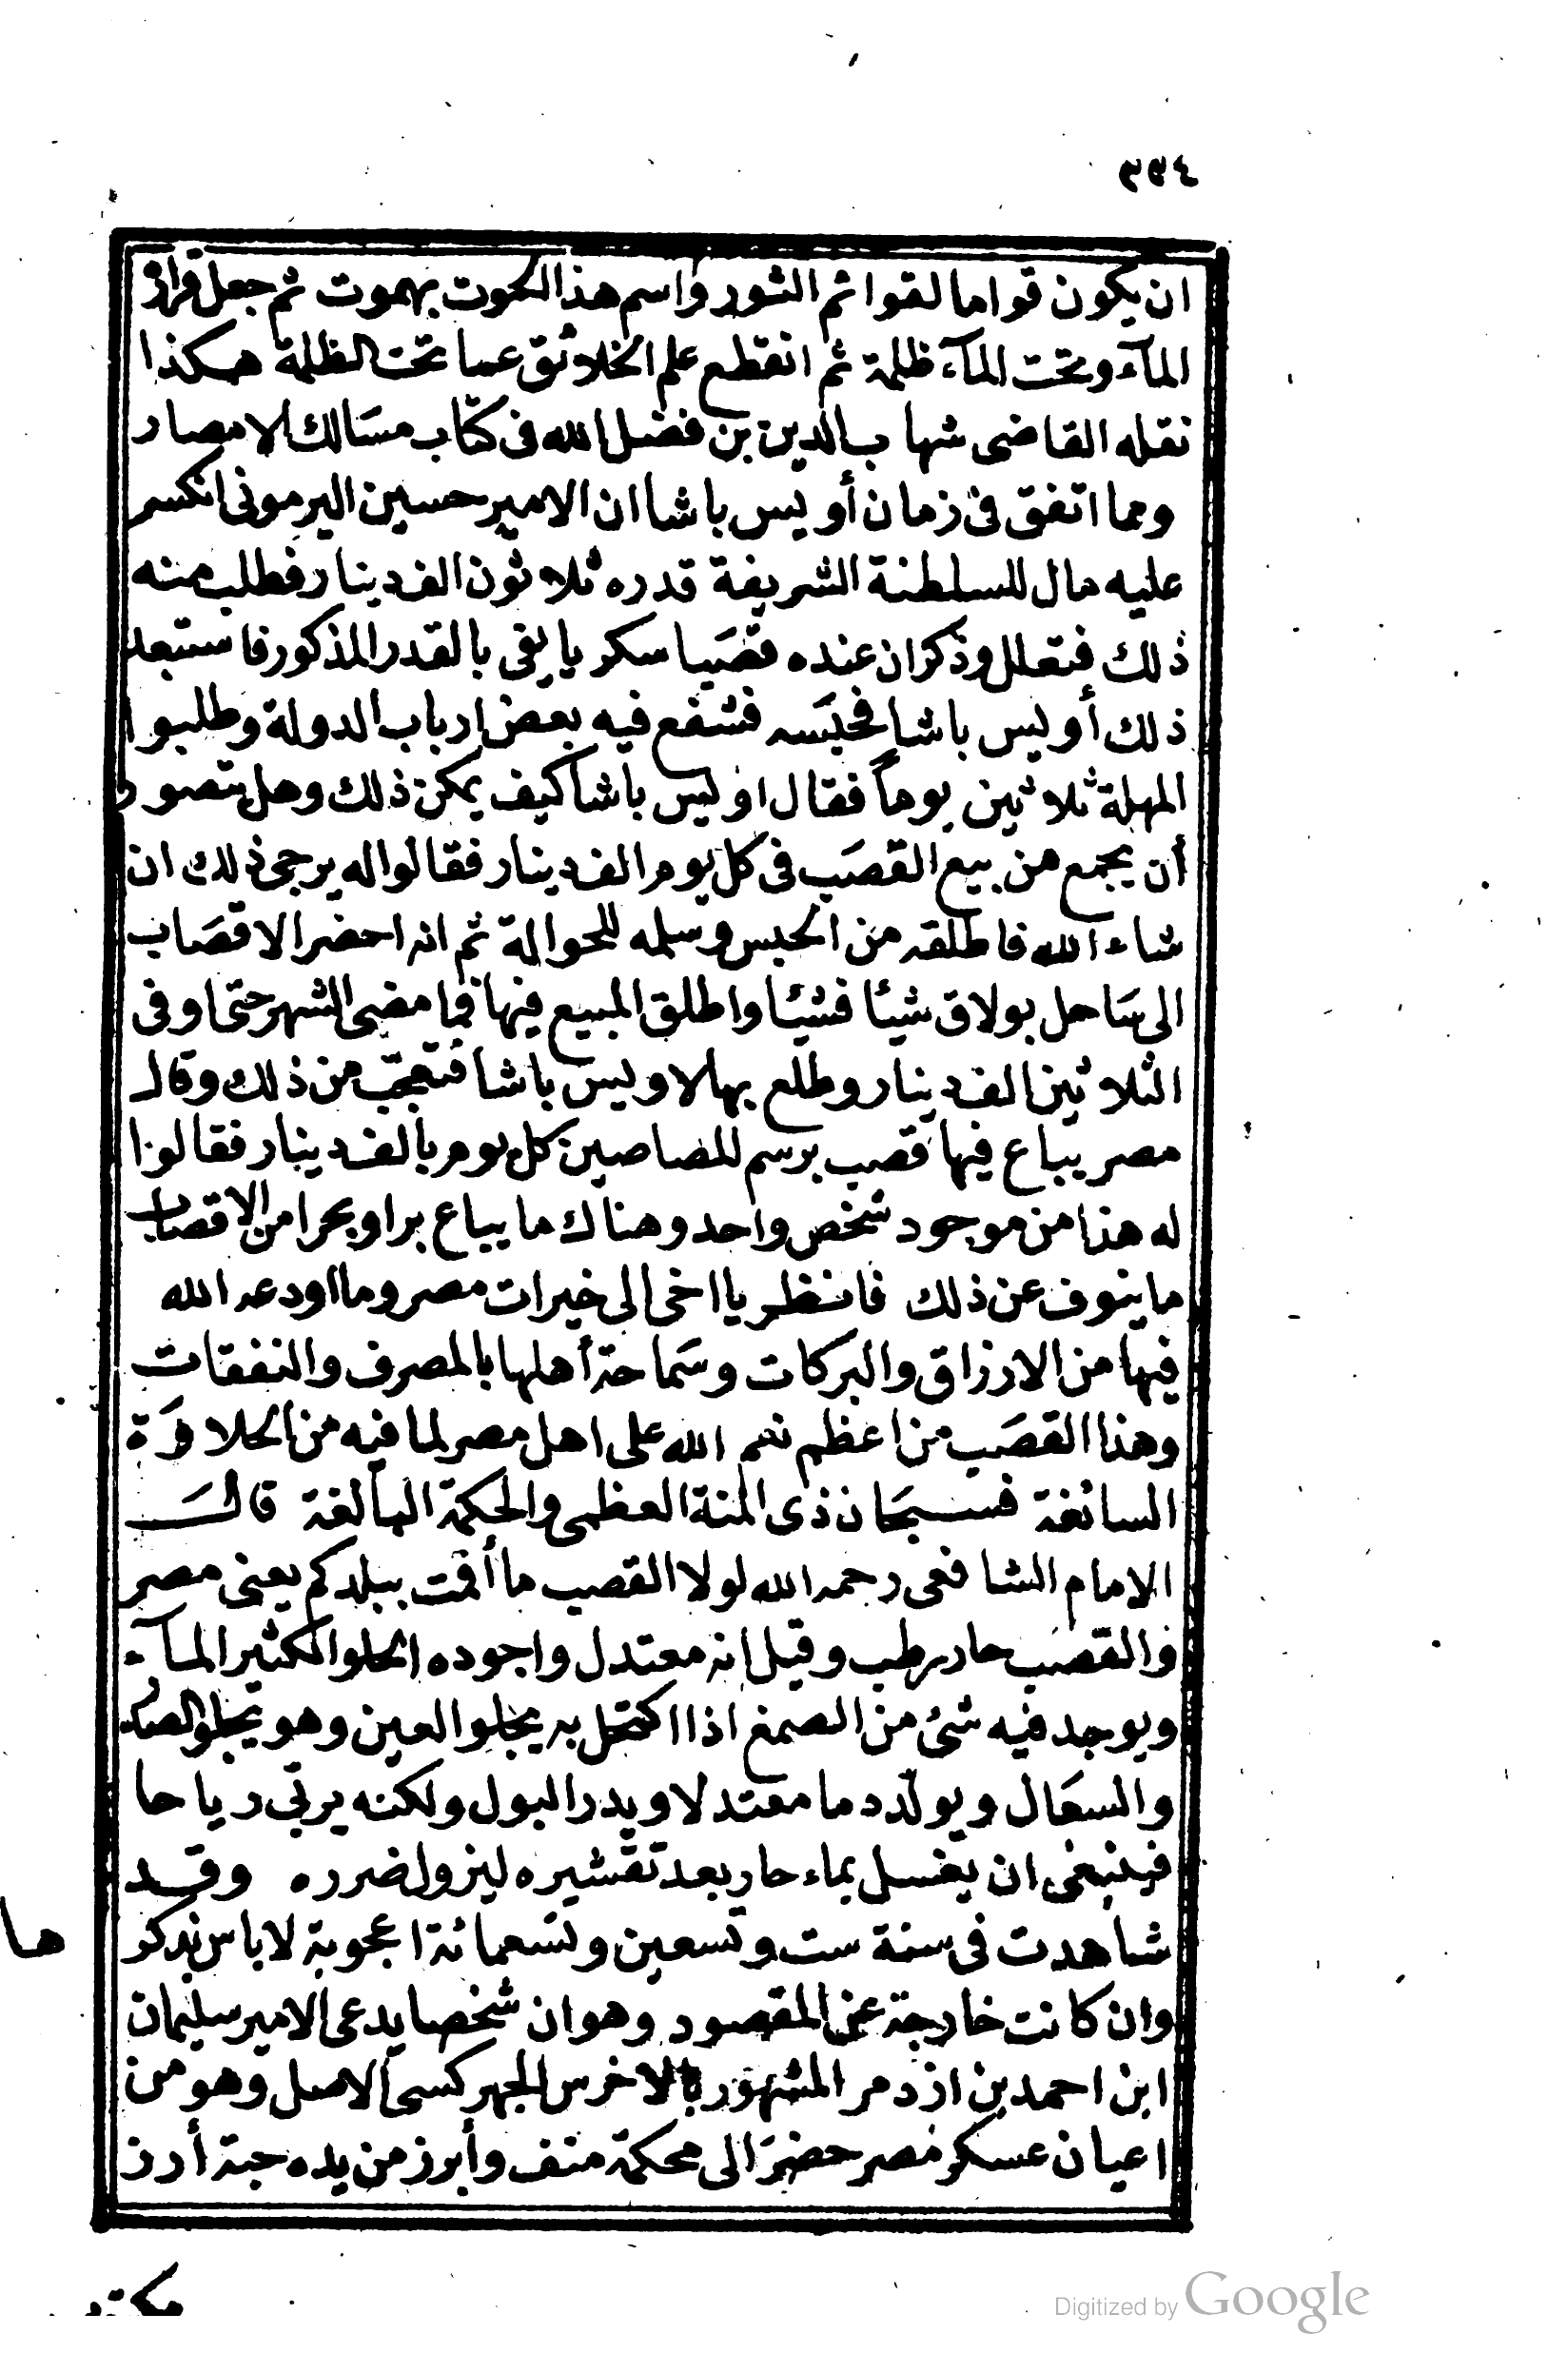 ٣٣٤
ان يكون قواما لقوائم الثور واسم هذا الحوت بهموت ثم جعل قراره
المآء وتحت المآء ظلمة ثم انقطع علم الخلائق عما تحت الظلمة هكذا
نقله القاضى شهاب الدين بن فضل الله فى كتاب مسالك الامصار
ومما اتفق فى زمان أويس باشا ان الامير حسين اليرمونى انكسر
عليه مال للسلطنة الشريفة قدره ثلاثون الف دينار فطلب منه
ذلك فتعلل وذكر ان عنده قصَبا سكريا يفى بالقدر المذكور فاستبعد
ذلك أويس باشا فحبَسه فشفع فيه بعض ارباب الدولة وطلبوا
المهلة ثلاثين يوماً فقال اويس باشا كيف يمكن ذلك وهل يتصور
أن يجمع من بيع القصَب فى كل يوم الف دينار فقالوا له يرجى ذلك ان
شاء الله فاطلقه من الحبس وسلمه للحوالة ثم انه احضر الاقصَاب
الى سَاحل بولاق شيئا فشيئا واطلق المبيع فيها فما مضى الشهر حتى اوفى
الثلاثين الف دينار وطلع بها لاويس باشا فتعجّب من ذلك وقال
مصر يباع فيها قصب برسم للمصاصين كل يوم بالف دينار فقالوا
له هذا من موجود شخص واحد وهناك ما يباع برا وبحرا من الاقصاب
ما ينوف عن ذلك فانظر يا اخى الى خيرات مصر وما اودعه الله
فيها من الارزاق والبركات وسَماحة أهلها بالمصرف والنفقات
وهذا القصَب من اعظم نعم الله على اهل مصر لما فيه من الحلاوَة
السائغة فسبحَان ذى المنة العظمى والحكمة البالغة قالَ
الامام الشافعى رحمه الله لولا القصب ما أقمت ببلدكم يعنى مصر
والقصَب حار رطب وقيل انه معتدل واجوده الحلو الكثير المآء
ويوجد فيه شئ من الصمغ اذا اكتحل به يجلو العين وهو يجلو الصدر
والسعَال ويولّد دما معتدلا ويدر البول ولكنه يربّى رياحا
فينبغى ان يغسل بماء حار بعد تقشيره ليزول ضرره وقد
شاهدت فى سنة ست وتسعين وتسَعمائة اعجوبة لا باس بذكرها
وان كانت خارجة عن المقصود وهو ان شخصا يدعى الامير سليمان
ابن احمد بن ازدمر المشهور بالاخرس الجهركسى الاصل وهو من
اعيان عسكر مصر حضرَ الى محكمة منف وأبرز من يده حبة أرز
مكتوب
Digitized by Google